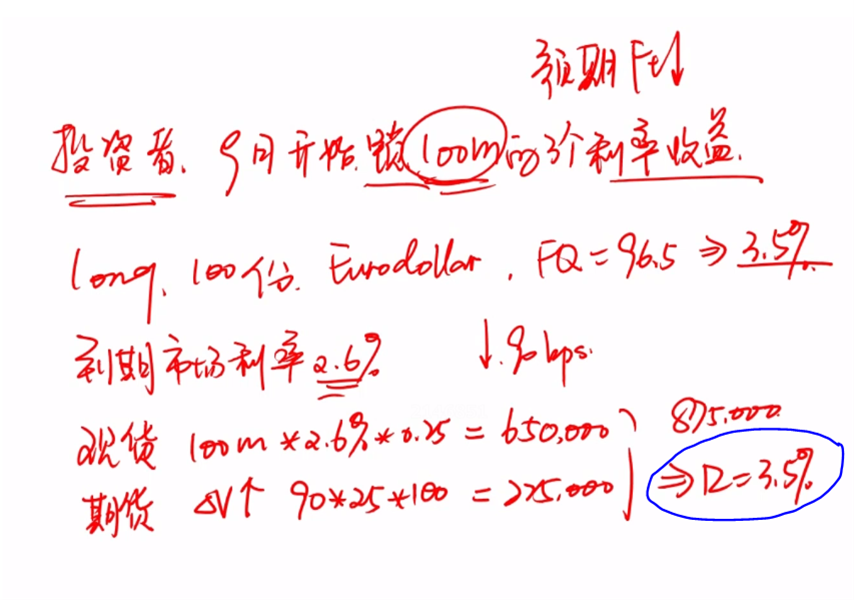 预期 Ft↓
投资者、9月开始锁100m的3个利率收益.
long、100份、Eurodollar, FQ=96.5 ⇒ 3.5%
到期市场利率2.6% ↓90bps.
现货 100m*2.6%*0.25=650,000 875,000
期货 ΔV↑ 90*25*100=225,000 ⇒R=3.5%